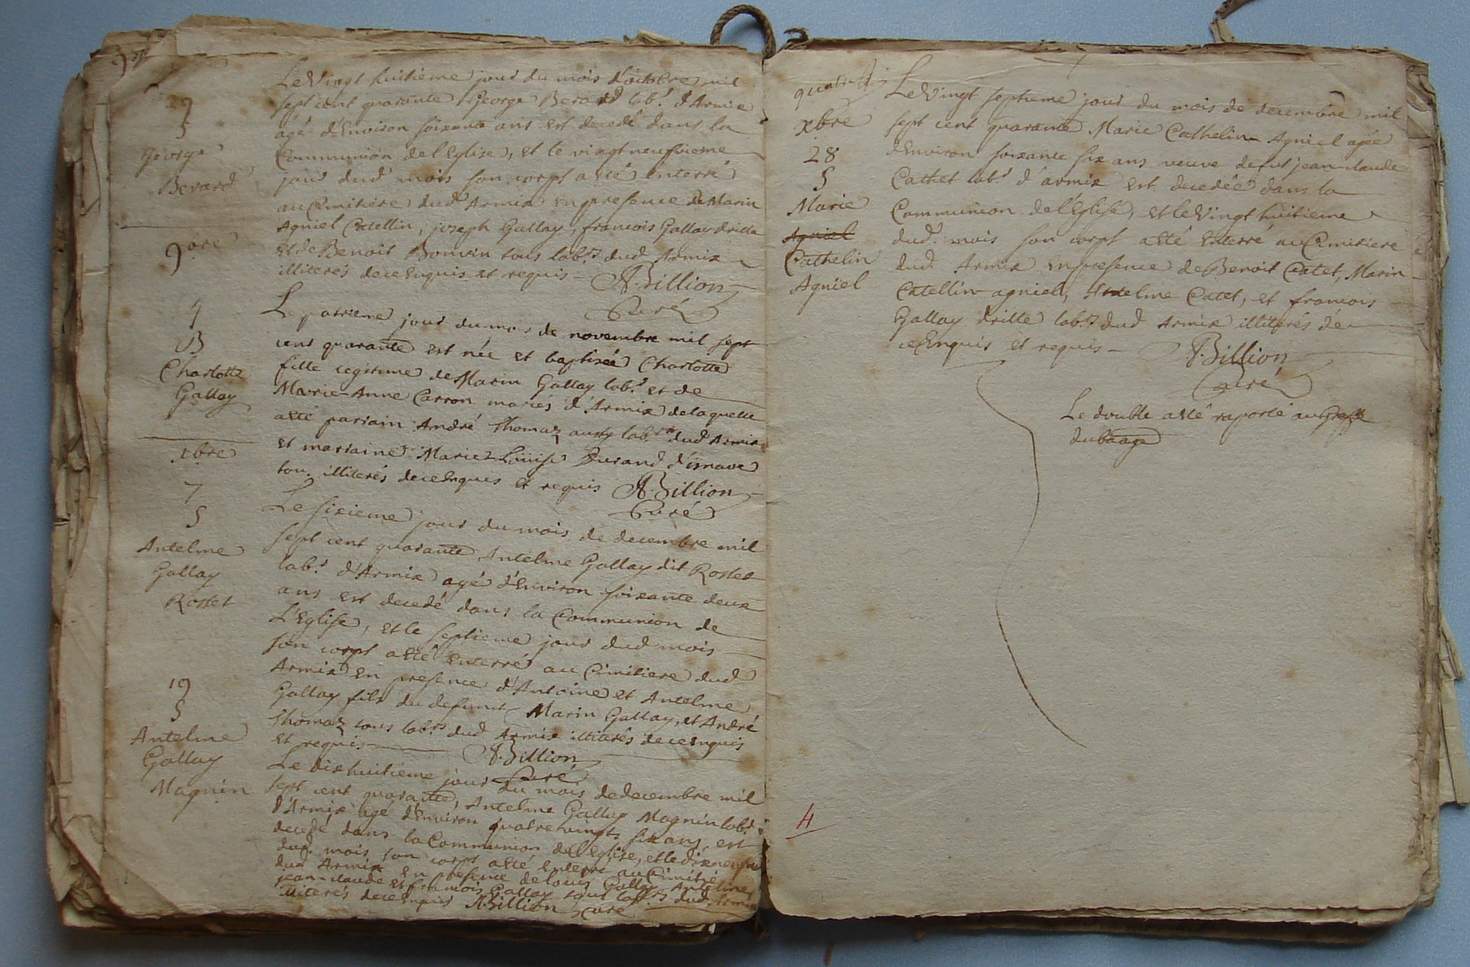 29
S
George
Berard
Le Vingt huitieme jour du mois d'octobre mil
sept cent quarante George Berard lab.r d'Armix
âgé d'Environ soixante ans est decedé dans la
Communion de l'Eglise, et le vingt neufvieme
jour dud mois son corps a eté enterré
au Cimitiere dud Armix en presence de Marin
Agniel Catellin, joseph Gallay, francois Gallay drille
et de Benoit Bonvin tous lab.rs dud Armix
illiterés de ce Enquis et requis A. Billion
Curé
9bre
4
B
Charlotte
Gallay
Le quatrieme jour du mois de novembre mil sept
cent quarante est née et baptisée Charlotte
fille legitime de Marin Gallay lab.r et de
Marie-Anne Carron mariés d'Armix de laquelle
a eté pariain André Thomaz aussy lab.r dud Armix
et mariaine Marie Louise Durand
tous illiterés de ce Enquis et requis A. Billion
Curé
xbre
7
S
Antelme
Gallay
Rostet
Le sixieme jour du mois de decembre mil
sept cent quarante Antelme Gallay dit Rostet
lab.r d'Armix agé d'Environ soixante deux
ans est decedé dans la Communion de
L'Eglise, et le septieme jour dud mois
son corps a eté enterré au Cimitiere dud
Armix en presence d'Antoine et Antelme
Gallay fils du defunt Marin Gallay, et André
Thomaz tous lab.rs dud Armix illiterés de ce Enquis
et requis A. Billion
Curé
19
S
Antelme
Gallay
Magnin
Le dixhuitieme jour du mois de decembre mil
sept cent quarante, Antelme Gallay Magnin lab.r
d'Armix agé d'Environ quatrevingts six ans, est
decedé dans la Communion de l'Eglise, et le dixneuf
dud. mois son corps a eté enterré au Cimitiere
dud Armix en presence de louis Gallay, Antelme
jean claude et francois Gallay tous lab.rs dud Armix
illiterés de ce Enquis A. Billion Curé
xbre
28
S
Marie
Agniel
Cathelin
Agniel
Le Vingt septieme jour du mois de decembre mil
sept cent quarante Marie Cathelin Agniel agée
d'Environ soixante six ans veuve de fut jean claude
Cathet lab.r d'armix est decedée dans la
Communion de l'Eglise, et le Vingt huitieme
dud. mois son corps a eté Enterré au Cimitiere
dud Armix en presence de Benoit Catet, Marin
Catellin agniel, Antelme Catet, et francois
Gallay drille lab.rs dud Armix illiterés de
ce Enquis et requis A. Billion
Curé
Le double a eté raporté au Greffe
du
4